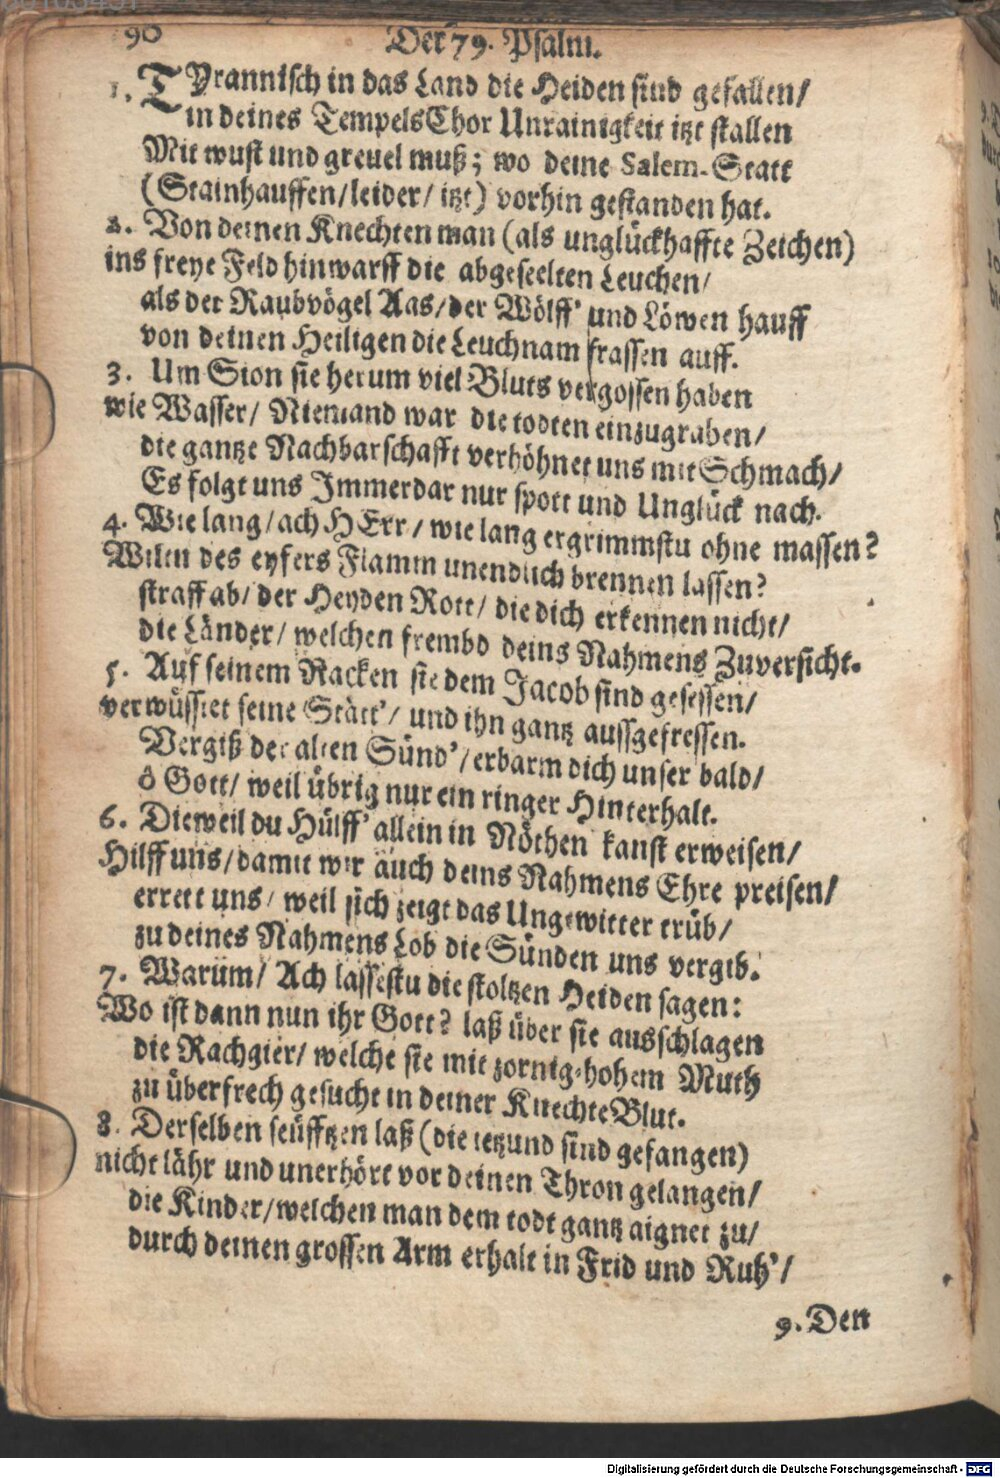 90
Der 79. Psalm.
1. Tyrannisch in das Land die Heiden sind gefallen/
in deines Tempels Chor Unrainigkeit itzt stallen
Mit wust und greuel muß; wo deine Salem-Statt
(Stainhauffen/leider/ itzt) vorhin gestanden hat.
2. Von deinen Knechten man (als unglückhaffte Zeichen)
ins freye Feld hinwarff die abgeseelten Leuchen/
als der Raubvögel Aas/der Wölff' und Löwen hauff
von deinen Heiligen die Leuchnam frassen auff.
3. Um Sion sie herum viel Bluts vergossen haben
wie Wasser/ Niemand war die todten einzugraben/
die gantze Nachbarschafft verhöhnet uns mit Schmach/
Es folgt uns Immerdar nur spott und Unglück nach.
4. Wie lang/ach HErr/ wie lang ergrimmstu ohne massen?
Wilen des eyfers Flamm unendlich brennen lassen?
straff ab/ der Heyden Rott/ die dich erkennen nicht/
die Länder/ welchen frembd deins Nahmens Zuversicht.
5. Auf seinem Racken sie dem Jacob sind gesessen/
verwüsstet seine Stätt'/ und ihn gantz aussgefressen.
Vergiß der alten Sünd'/erbarm dich unser bald/
ô Gott/ weil übrig nur ein ringer Hinterhalt.
6. Dieweil du Hülff' allein in Nöthen kanst erweisen/
Hilff uns/damit wir auch deins Nahmens Ehre preisen/
errett uns/ weil sich zeigt das Ungewitter trüb/
zu deines Nahmens Lob die Sünden uns vergib.
7. Warüm/ Ach lassestu die stoltzen Heiden sagen:
Wo ist dann nun ihr Gott? laß über sie ausschlagen
die Rachgier/ welche sie mit zornig-hohem Muth
zu überfrech gesucht in deiner Knechte Blut.
8. Derselben seüfftzen laß (die ietzund sind gefangen)
nicht lähr und unerhört vor deinen Thron gelangen/
die Kinder/welchen man dem todt gantz aignet zu/
durch deinen grossen Arm erhalt in Frid und Ruh'/
9. Den
Digitalisierung gefördert durch die Deutsche Forschungsgemeinschaft - DFG